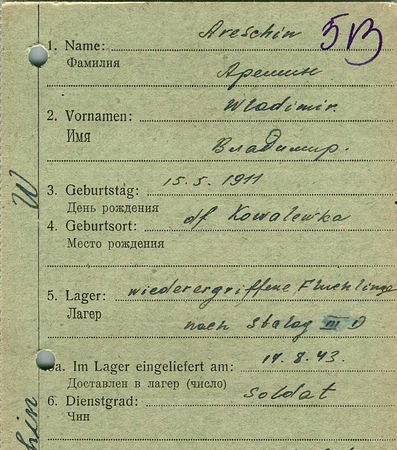 Areschin
5B
1. Name:
Фамилия
Арешин
Wladimir.
2. Vornamen:
Имя
Владимир.
3. Geburtstag: 15.5.1911
День рождения
4. Geburtsort: df Kowalewka
Место рождения
W
5. Lager: wiederergriffene Fluchlinge
Лагер
nach Stalag III D
5a. Im Lager eingeliefert am: 14.8.43.
Доставлен в лагер (число)
6. Dienstgrad: Soldat
Чин